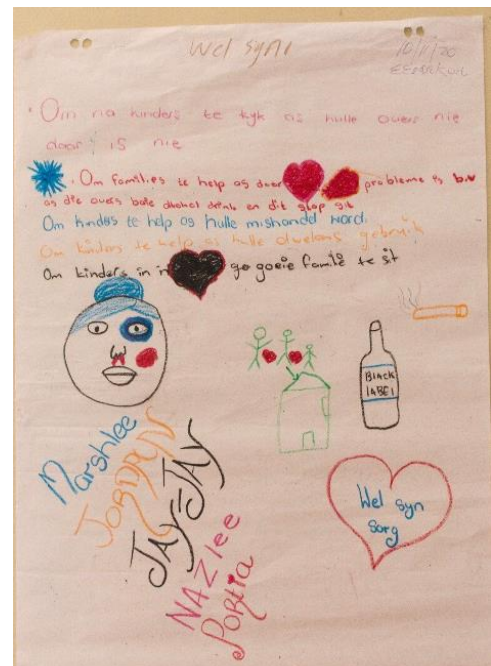 Wel syn
10/11/20
EENDEKUIL
Om na kinders te kyk as hulle ouers nie
daar is nie
Om families te help as daar probleme is b.v
as die ouers baie alkohol drink en dit stop sit
Om kinders te help as hulle mishandel word.
Om kinders te help as hulle dwelms gebruik
Om kinders in in goeie familie te sit
BlACK
lABEl
Marshlee
JORDAYN
JAY=JAY
NAZlee
PORtia
Wel syn
sorg